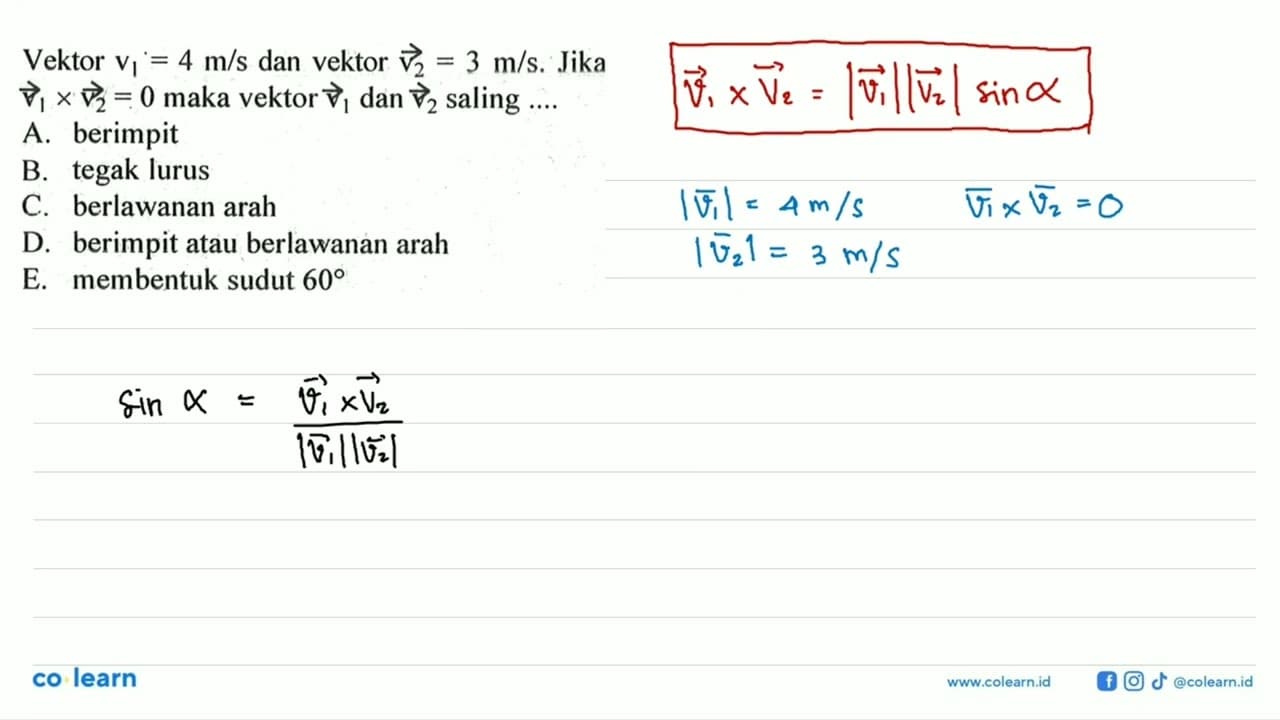 Vektor v₁ = 4 m/s dan vektor v⃗₂ = 3 m/s. Jika
v⃗₁ × v⃗₂ = 0 maka vektor v⃗₁ dan v⃗₂ saling ....
A. berimpit
B. tegak lurus
C. berlawanan arah
D. berimpit atau berlawanan arah
E. membentuk sudut 60°
v⃗₁ × v⃗₂ = |v⃗₁||v⃗₂| sin α
|v̅₁| = 4 m/s
v̅₁ × v̅₂ = 0
|v̅₂| = 3 m/s
sin α = v⃗₁ × v⃗₂ / |v̅₁||v̅₂|
co learn
www.colearn.id
@colearn.id